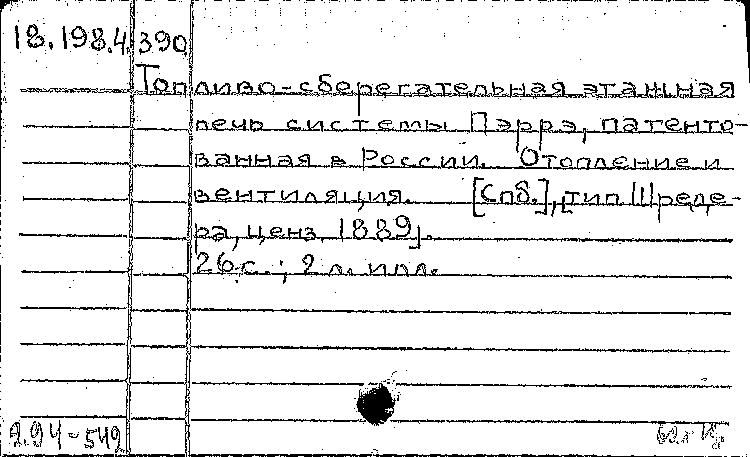 18.198.4.390
Топливо-сберегательная этажная
печь системы Пэррэ, патенто-
ванная в России. Отопление и
вентиляция. [Спб.], [тип Шреде-
ра, ценз. 1889].
26 с.; 2 л. илл.
2.94-542